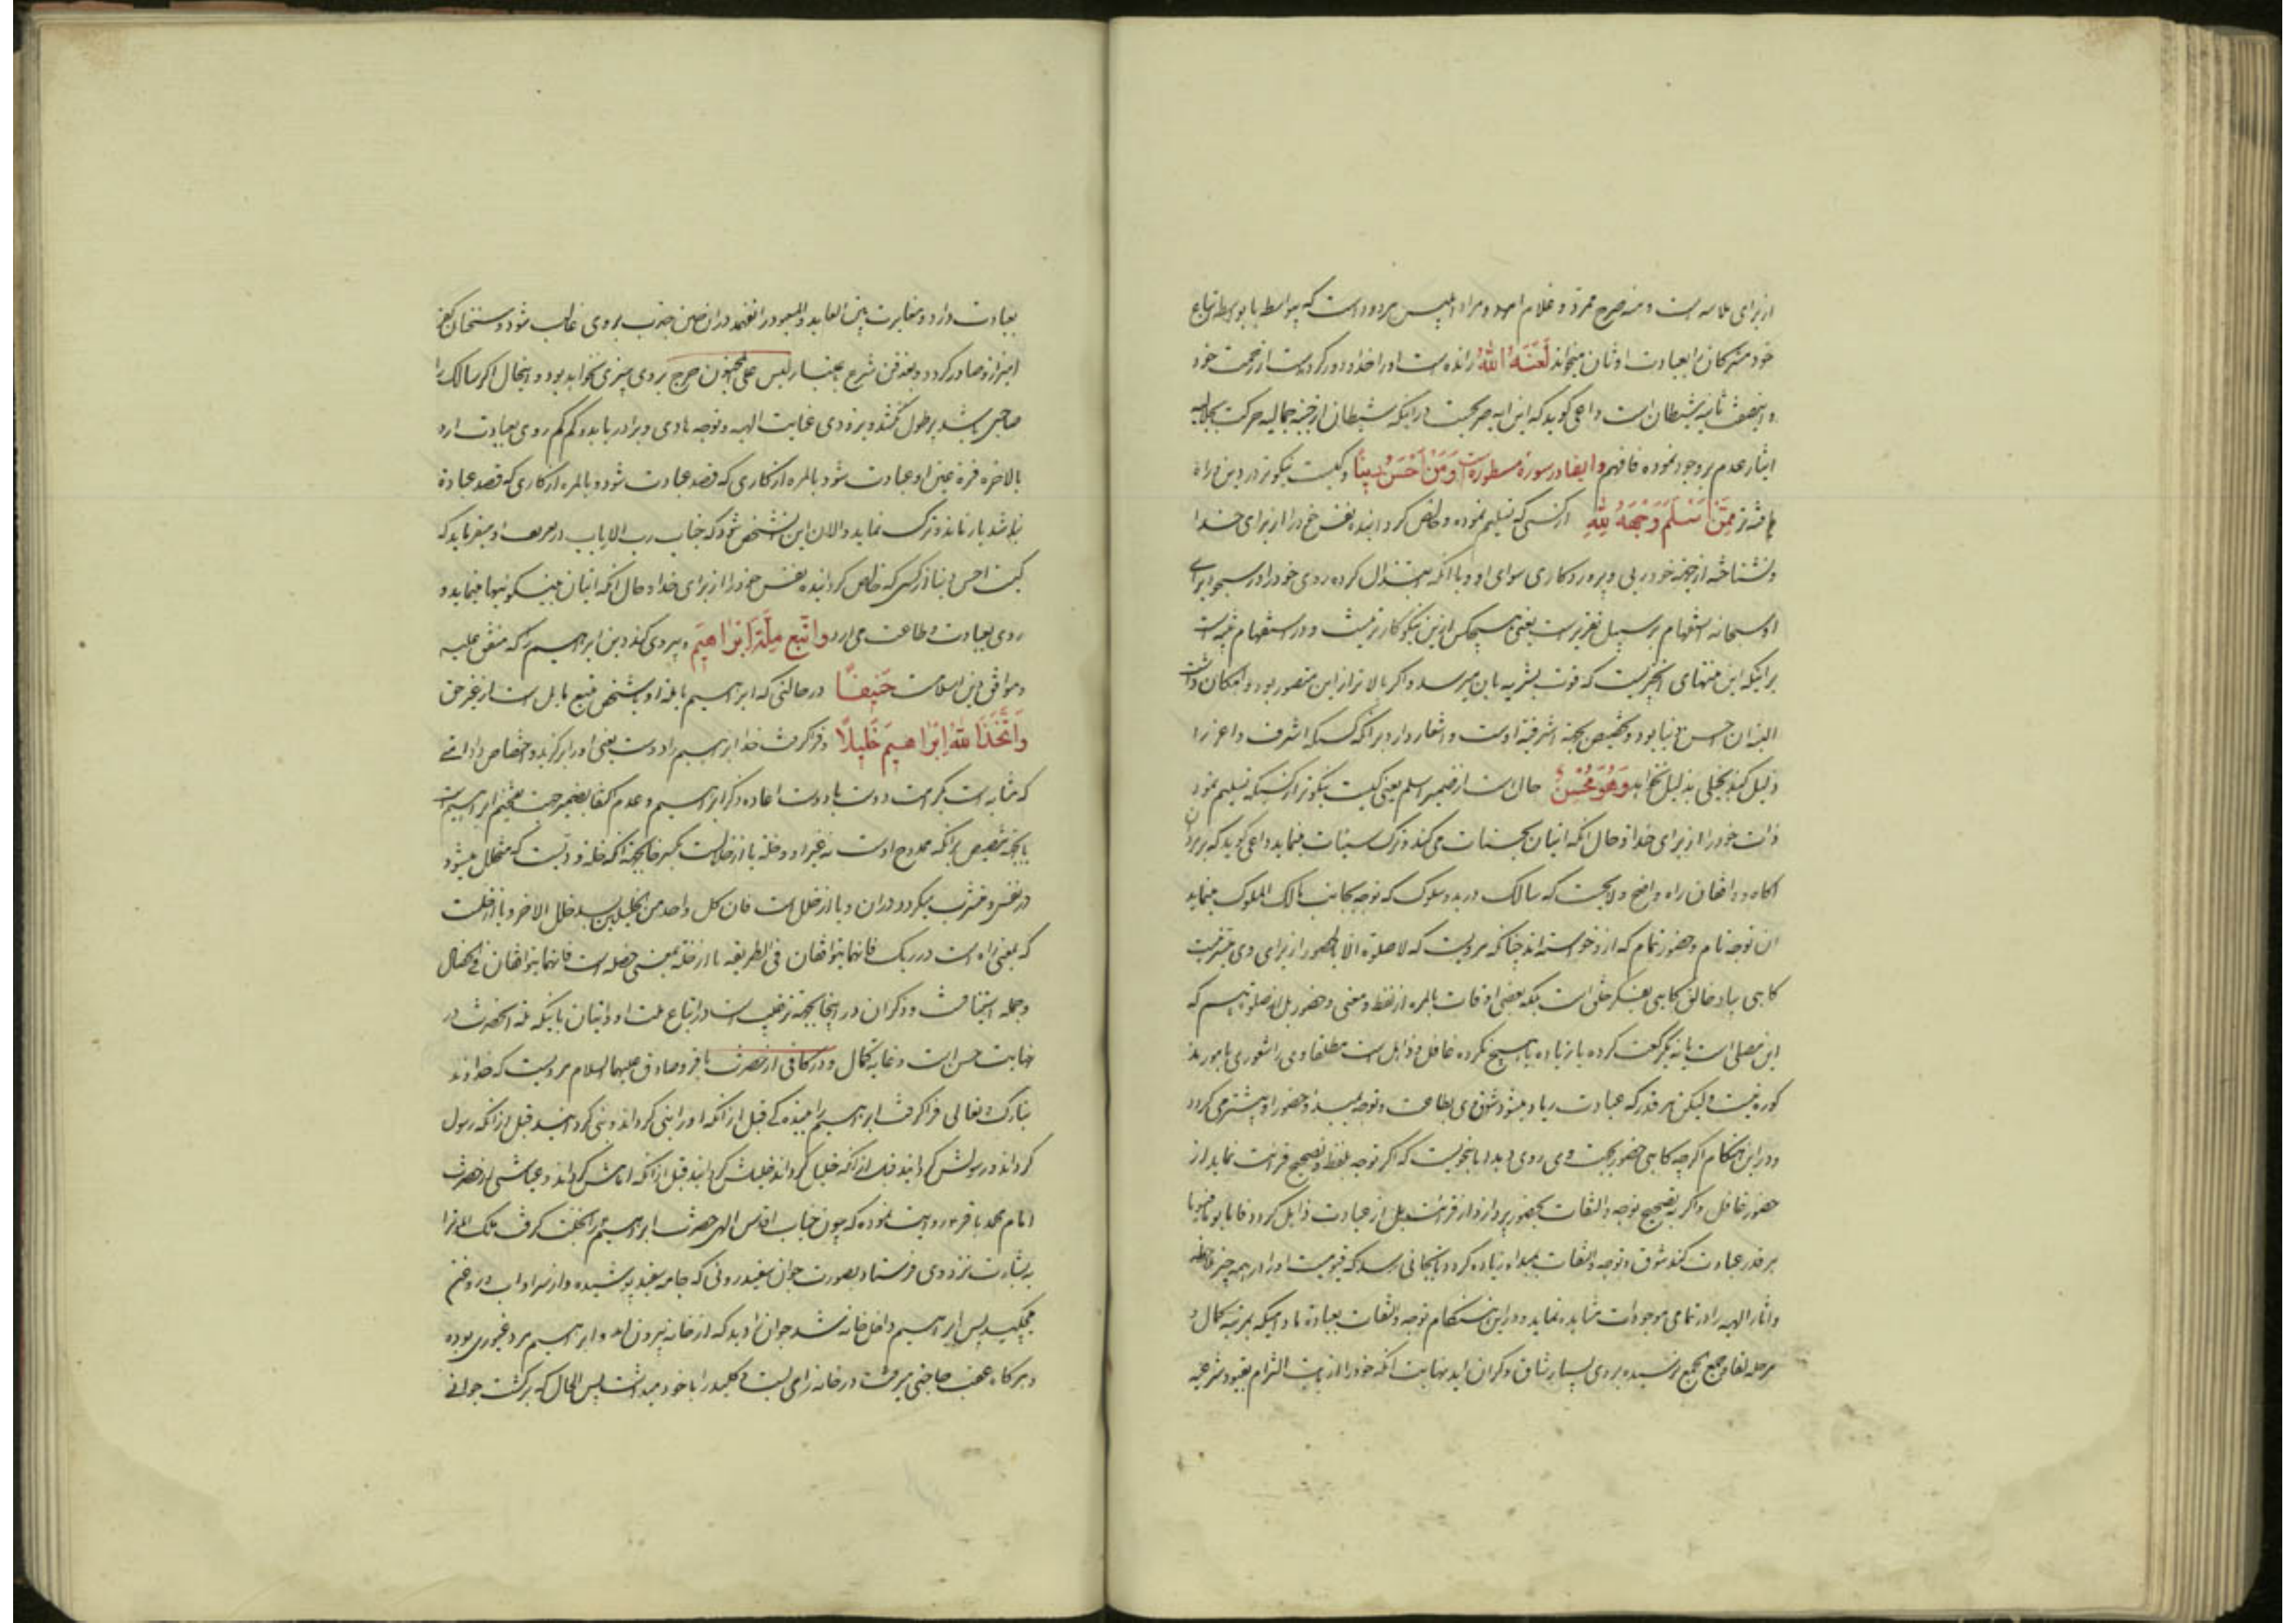 از برای ملابسه است و منه صرح ممرد و غلام امرد و مراد ابلیس مردود است که بواسطه یا بوسطه اتباع
خود مشرکان را بعبادت اوثان میخواند لَعَنَهُ اللهُ رانده است او را خدا و دور کرده است از رحمت خود
و این صفت ثانیه شیطان است داعی گوید که این ایه صریحت در اینکه شیطان از جنبه جمالیه حرکت بجلالیه
ایثار عدم بر وجود نموده فافهم وایضا در سورهٔ مسطوره است وَمَنْ اَحْسَنُ دینًا و کیست نیکوتر در دین و راه
یافته تر مِمَّنْ اَسْلَمَ وَجْهَهُ لِلّٰهِ از کسی که تسلیم نموده و خالص کردانیده نفس خود را از برای خدا
و نشناخته از جهة خود ربی و پروردکاری سوای او و یا انکه بتذلل کرده روی خود را در سجود برای
او سبحانه استفهام بر سبیل تقریر است یعنی هیچکس ازین نیکوکارتر نیست و در استفهام تنبیه است
بر اینکه این منتهای انچیزیست که قوت بشریه بان میرسد و اکر بالاتر از این متصور بود و امکان داشت
البته ان احسن دینا بود و تخصیص بجهة اشرفیة اوست و اشعار دارد بر انکه کسیکه اشرف و اعز را
ذلیل کند بخلی بذلیل نخواهد وَهُوَ مُحْسِنٌ حال است از ضمیر اسلم یعنی کیست نیکوتر از کسیکه تسلیم نمود
ذات خود را از برای خدا و حال انکه اتیان بحسنات می کند و ترک سیئات مینماید داعی گوید که بر بردان
اکاه و واقفان راه واضح و لایحست که سالک در بدو سلوک که توجه بجانب مالک الملوک مینماید
ان توجه تام و حضور تمام که ازو خواسته اند چنانکه مرویست که لا صلوة الا بالحضور از برای وی میسر نیست
کاهی بیاد خالق و کاهی بفکر خلق است بلکه بعضی اوقات بالمره از لفظ و معنی و حضور بل از صلوتیهم که
این مصلی است یا نه یک رکعت کرده یا زیاده یا هیچ نکرده غافل و ذاهل است مطلقا وی را شعوری بامور
کوره نیست ولیکن هر قدر که عبادت زیاد میشود شوق وی بطاعت و توجه بمبدء و حضور او بیشتر می کردد
و در این هنکام اکر چه کاهی حضور بجهت وی روی دهد اما بنحویست که اکر توجه بلفظ و تصحیح قرائت نماید از
حضور غافل و اکر بتصحیح توجه و التفات بحضور پردازد از قرائت بل از عبادت ذاهل کردد
هر قدر عبادت کند شوق و توجه و التفات بمبداء زیاده کردد تا بجائی رسد که قیومیت او را در همه چیز
و اثار الهیه را در تمامی موجودات مشاهده نماید و در این هنکام توجه و التفات بعبادة مادامیکه بمرتبه کمال و
مرحله لقا و جمع بجمع نرسیده بر وی بسیار شاق و کران اید بنهایت انکه خود را از جهت التزام بقیود شرعیه
بعبادت وادارد و مغایرت بین العابد و المعبود را نفهمد در ان حین جذب بر وی غالب شود و سخنان کفر
امیز از و صادر کردد و بعد فن شرع باعتبار لیس علی المجنون حرج بر وی چیزی نخواهد بود و اینحال اکر سالک را
صاحبی باشد بر طول نکشد و بزودی عنایت الهیه و توجه هادی ویرا دریابد و کم کم روی بعبادت ارد
بالاخره قرة عین او عبادت شود بالمره از کاری که قصد عبادت شود و بالمره از کاری که قصد عبادة
نباشد باز ماند و ترک نماید و الان این شخص شود که جناب رب الارباب در تعریف او میفرماید که
کیست احسن دینا از کسی که خالص کردانیده نفس خود را از برای خدا و حال انکه اتیان به نیکوئیها مینماید و
روی بعبادت و طاعت می ارد وَاتَّبَعَ مِلَّةَ اِبْرٰاهیمَ و پیروی کند دین ابراهیم را که متفق علیه
و موافق دین اسلامست حَنیفًا در حالتی که ابراهیم یا ملة او یا شخص متبع مایل است از غیر حق
وَاتَّخَذَ اللهُ اِبْرٰاهیمَ خَلیلًا و فراکرفت خدا ابراهیم را دوست یعنی او را برکزید و اختصاص داد
که مشابه است بکرامت دوست با دوست اعاده ذکر ابراهیم و عدم اکتفا بضمیر جهت تفخیم ابراهیم است
یا بجهة تنصیص بر انکه ممدوح اوست نه غیر او و خلة یا از خلالست بکسر خا بجهة انکه خلة و دیست که متخلل میشود
در نفس و مشرب میکردد در ان و یا از خلل است فان کل واحد من الخلیلین یسد خلل الاخر و یا از خلت
که بمعنی راه است در ریک فانهما یتوافقان فی الطریقه یا از خله بمعنی خصله است فانهما یتوافقان فی الخصال
و جمله استینافست و ذکر ان در اینجا بجهة ترغیب است در اتباع ملت او و اتیان باینکه ملة انحضرت در
نهایت حسن است و غایة کمال و در کافی از حضرت باقر و صادق علیهما السلام مرویست که خداوند
تبارک و تعالی فراکرفت ابراهیم را ببنده کی قبل از انکه او را نبی کرداند و نبی کردانید قبل از انکه رسول
کرداند و رسولش کردانید قبل از انکه خلیل کرداند و خلیلش کردانید قبل از انکه امامش کرداند و عیاشی از حضرت
امام محمد باقر روایت نموده که چون جناب اقدس الهی حضرت ابراهیم را بخلت کرفت ملک الموت را
به بشارت نزد وی فرستاد بصورت جوان سفید روئی که جامه سفید پوشیده و از سر او اب و روغن
میچکید پس ابراهیم داخل خانه شد جوان را دید که از خانه بیرون امد و ابراهیم مرد غیوری بوده
و هر کاه عقب حاجتی میرفت در خانه را می بست و کلید را با خود میداشت پس الحال که برکشت جوانی